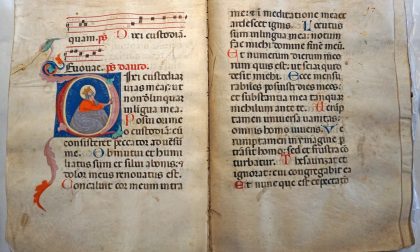 quam. ps Dixi custodiā.
Euouae. ps dauid.
Dixi custodiam
uias meas: ut
non delinquam
in lingua mea.
Posui ori m
eo custodiā: cū
consisteret peccator aduersū
me. Obmutui et humi
liatus sum et silui a bonis: et
dolor meus renouatus est.
Concaluit cor meum intra
me: & in meditatione mea ex
ardescet ignis. Locutus
sum in lingua mea: notum
fac michi domine finē meū.
Et numerum dierum meo
rum quis est: ut sciam quid
desit michi. Ecce mensu
rabiles posuisti dies meos:
et substantia mea tanquā
nichilum ante te. Uerūp
tamen uniuersa uanitas:
omnis homo uiuens. Ue
rumptamen in ymagine per
transit homo: sed et frustra cō
turbatur. Thesaurizat et
ignorat: cui congregabit ea
Et nunc que est expectatō